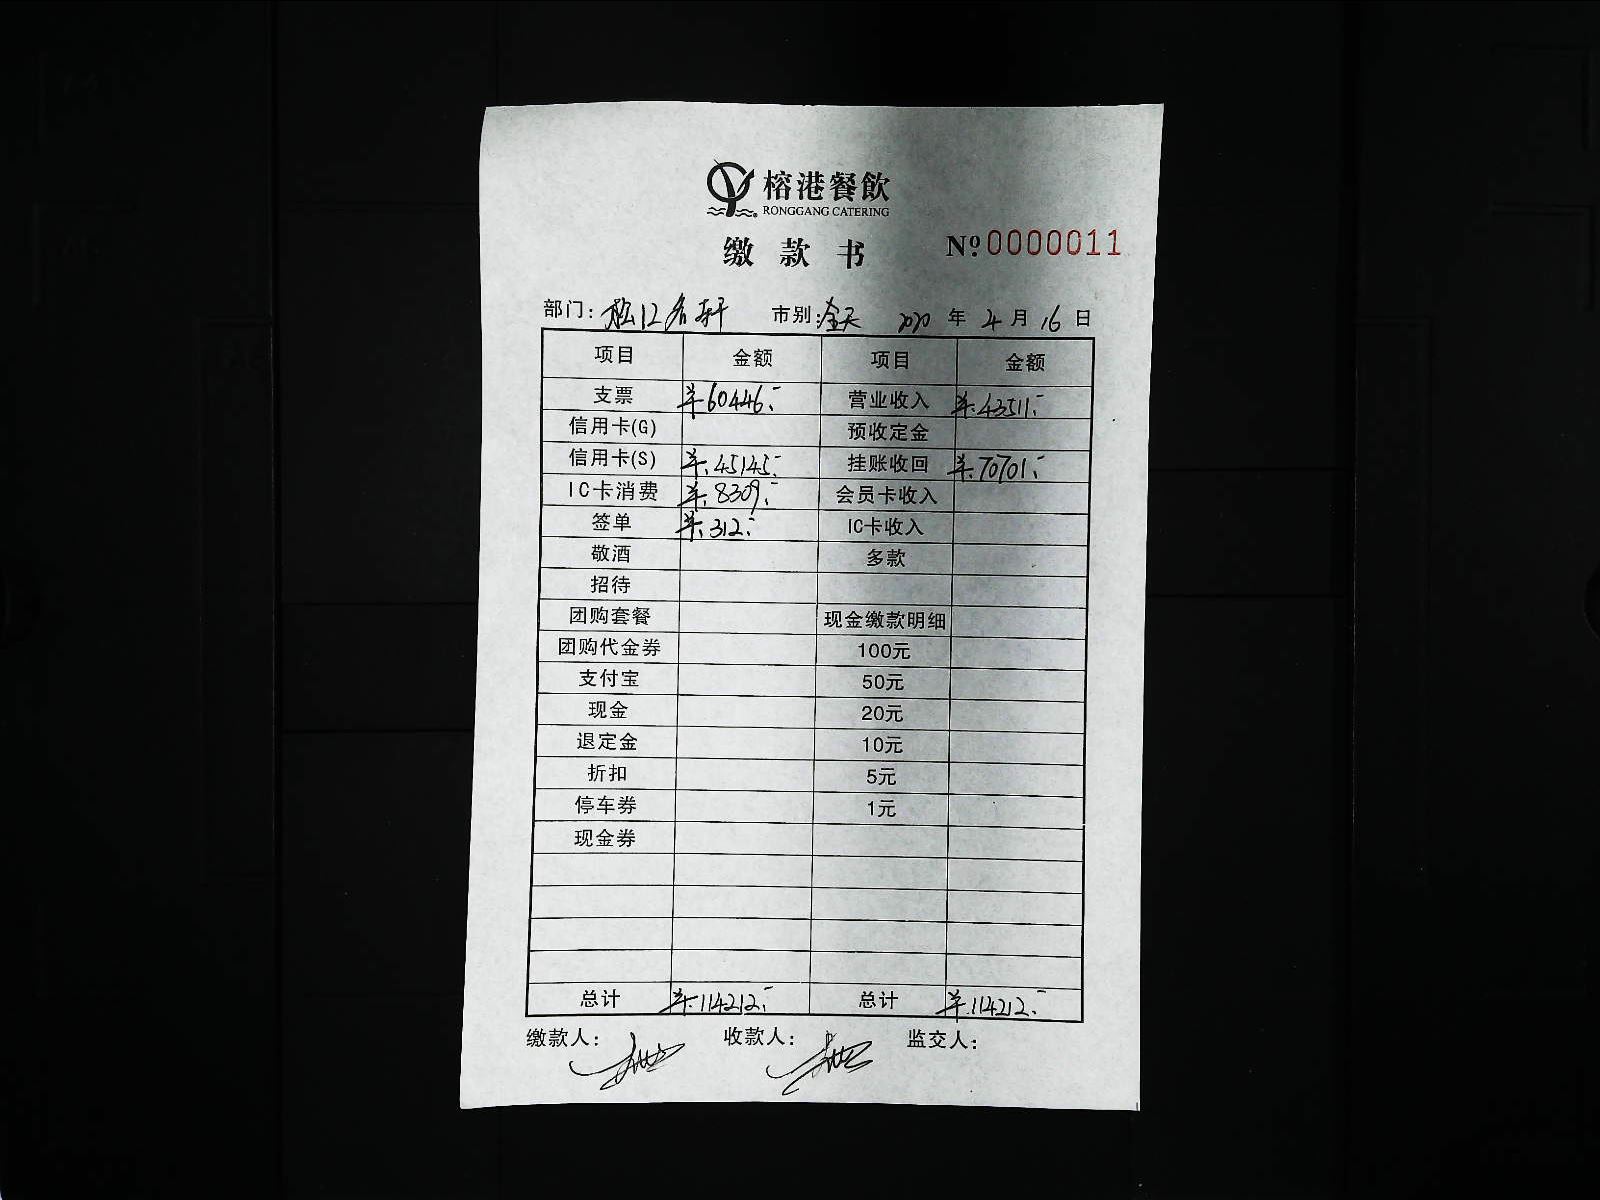 榕港餐飲
RONGGANG CATERING
缴款书 №0000011
部门: 松江名轩 市别: 全天 2020 年 4 月 16 日
项目 金额 项目 金额
支票 ¥60446.- 营业收入 ¥.43511.-
信用卡(G) 预收定金
信用卡(S) ¥.45145.- 挂账收回 ¥.70701.-
IC卡消费 ¥.8309.- 会员卡收入
签单 ¥.312.- IC卡收入
敬酒 多款
招待
团购套餐 现金缴款明细
团购代金券 100元
支付宝 50元
现金 20元
退定金 10元
折扣 5元
停车券 1元
现金券
总计 ¥.114212.- 总计 ¥.114212.-
缴款人: 收款人: 监交人: